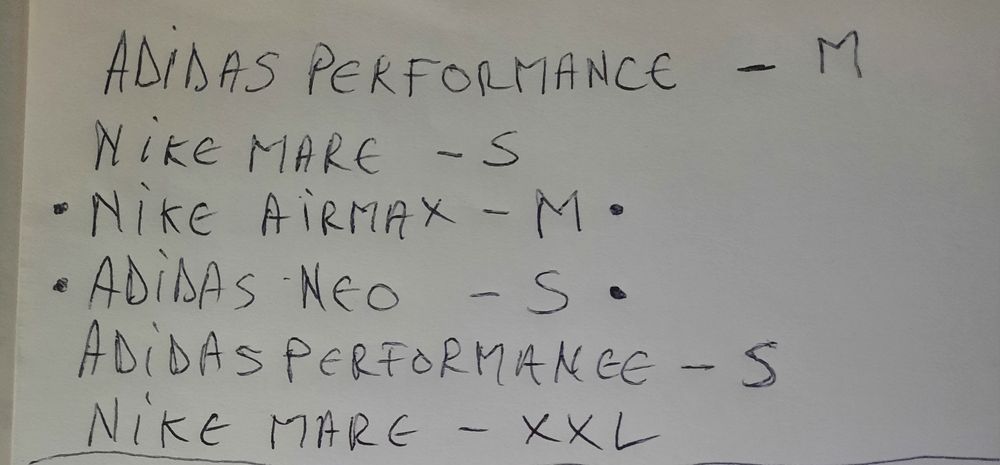 ADiDAS PERFORMANCE - M
NiKE MARE - S
• NiKE AiRMAX - M •
• ADiDAS NEO - S •
ADiDAS PERFORMANCE - S
NiKE MARE - XXL